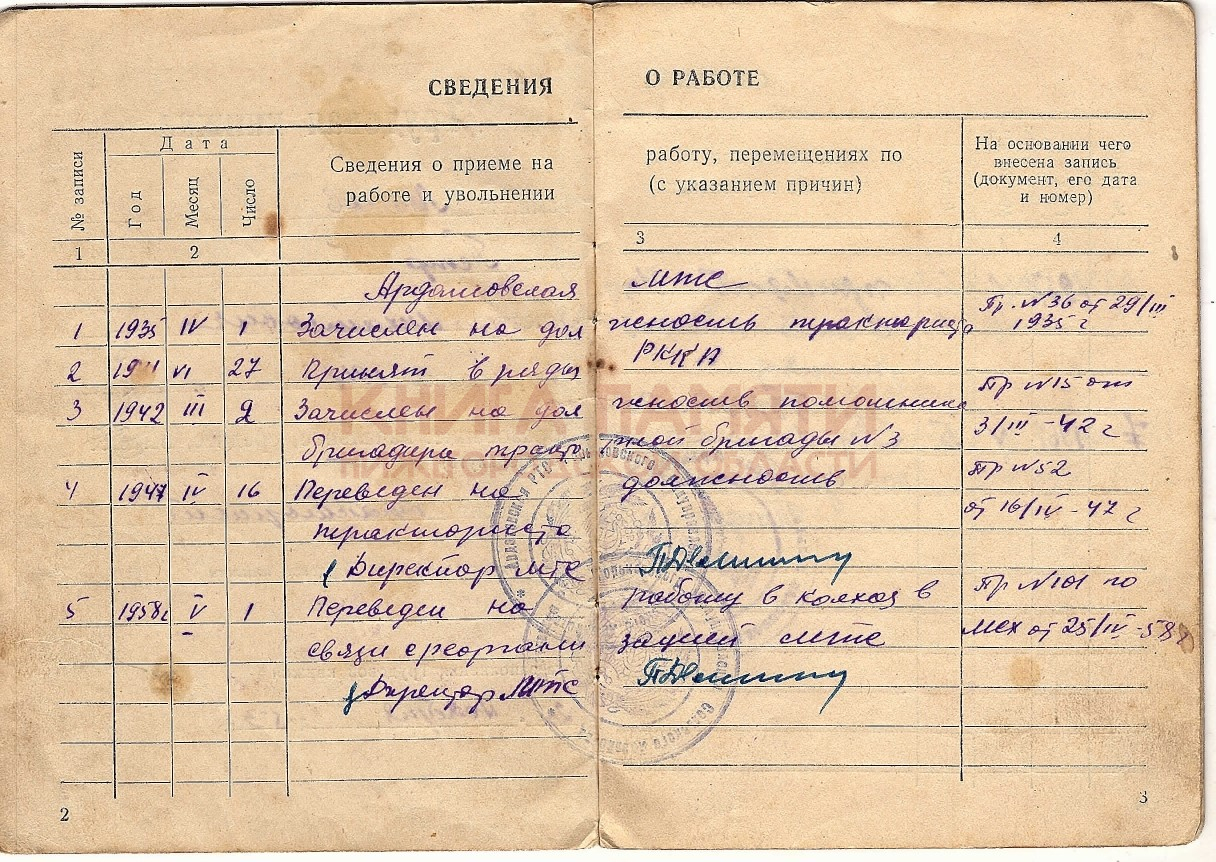 СВЕДЕНИЯ О РАБОТЕ
№ записи
Дата
Год
Месяц
Число
Сведения о приеме на работу, перемещениях по
работе и увольнении (с указанием причин)
На основании чего
внесена запись
(документ, его дата
и номер)
1 2 3 4
Ардатовская МТС
1 1935 IV 1 Зачислен на должность тракториста Пр. №36 от 29/III
1935 г
2 VI 27 Принят в ряды РККА
3 1942 III 2 Зачислен на должность помошника Пр №15 от
бригадира тракторной бригады №3 3/III-42 г
4 1947 IV 16 Переведен на должность Пр №52
тракториста от 16/IV-47 г
Директор МТС
5 1958г V 1 Переведен на работу в колхоз в Пр №101 по
связи с реорганизацией МТС МТС от 25/IV-58 г
Директор МТС
КНИГА ПАМЯТИ
НИЖЕГОРОДСКОЙ ОБЛАСТИ
2
3